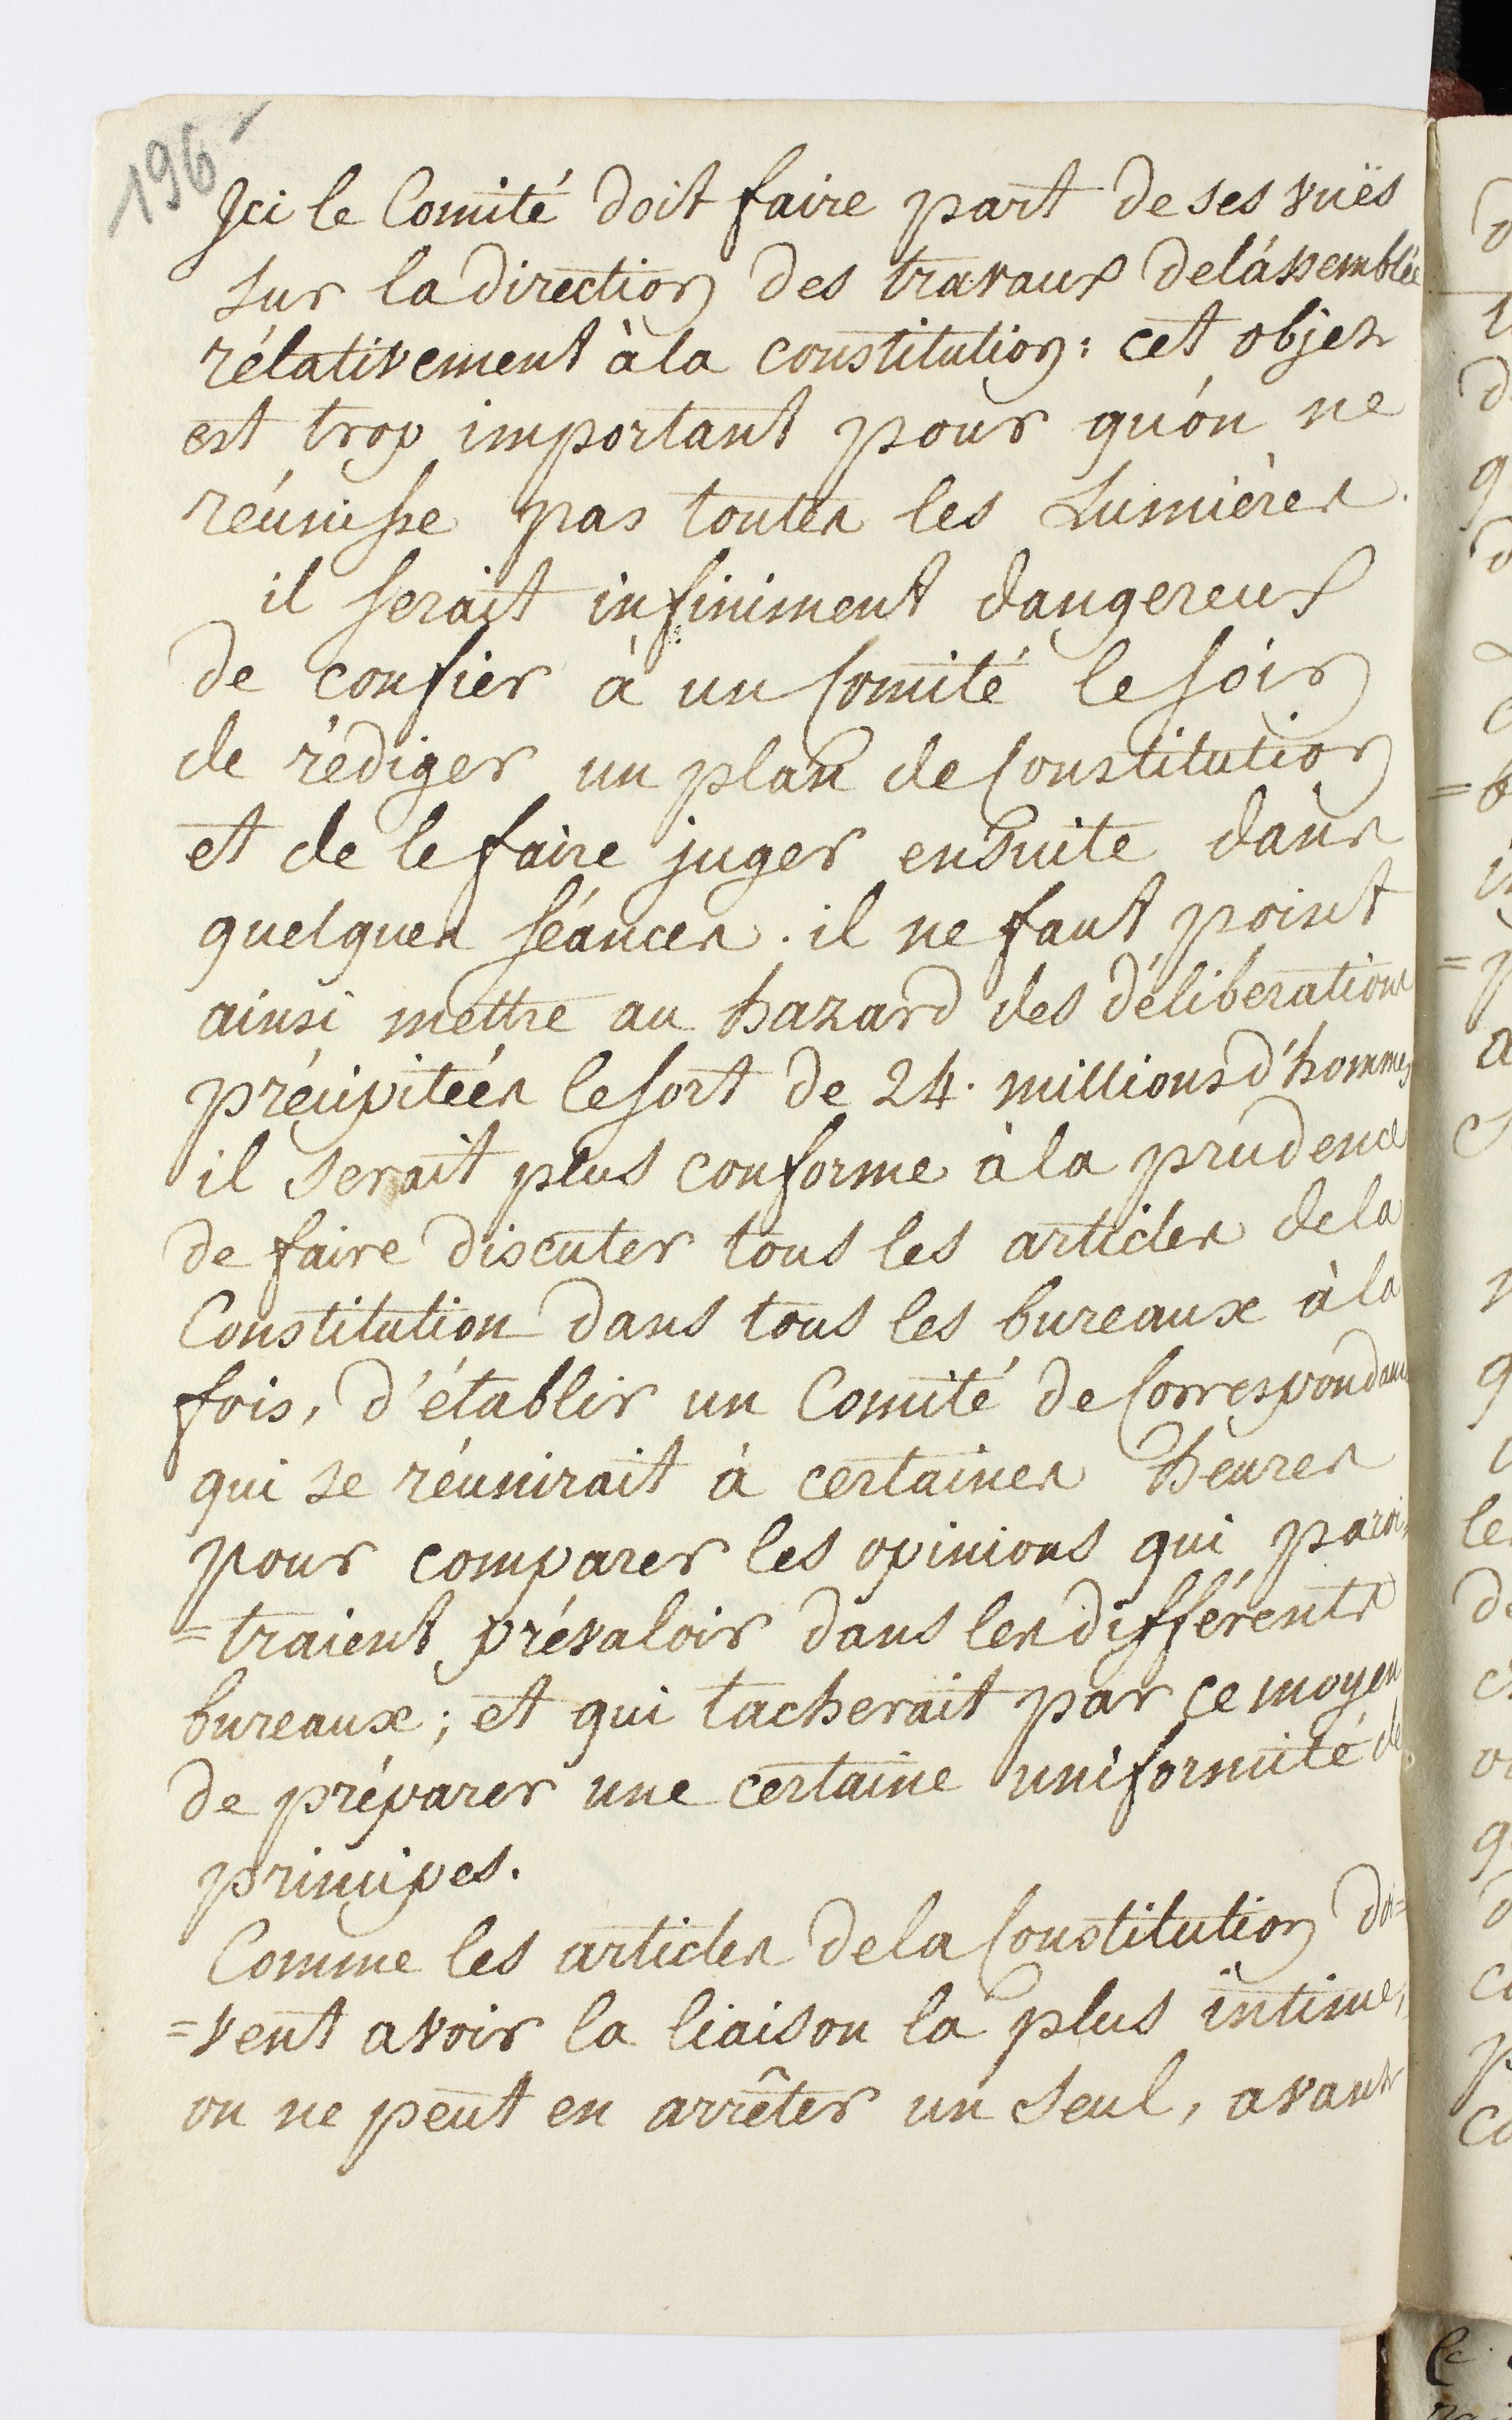 196
Ici le Comité doit faire part de ses vuës
sur la direction des travaux de l'assemblée
rélativement à la constitution : cet objet
est trop important pour qu'on ne
réunisse pas toutes les Lumières.
il serait infiniment dangereux
de confier à un Comité le soin
de rédiger un plan de Constitution
et de le faire juger ensuite dans
quelques séances. il ne faut point
ainsi mettre au hazard des déliberations
précipitées le sort de 24. millions d'hommes
il serait plus conforme à la prudence
de faire discuter tous les articles de la
Constitution dans tous les bureaux à la
fois, d'établir un Comité de Correspondance
qui se réunirait à certaines heures
pour comparer les opinions qui paroi=
=traient prévaloir dans les différents
bureaux; et qui tacherait par ce moyen
de préparer une certaine uniformité de
principes.
Comme les articles de la Constitution doi=
=vent avoir la liaison la plus intime,
on ne peut en arrêter un seul, avant